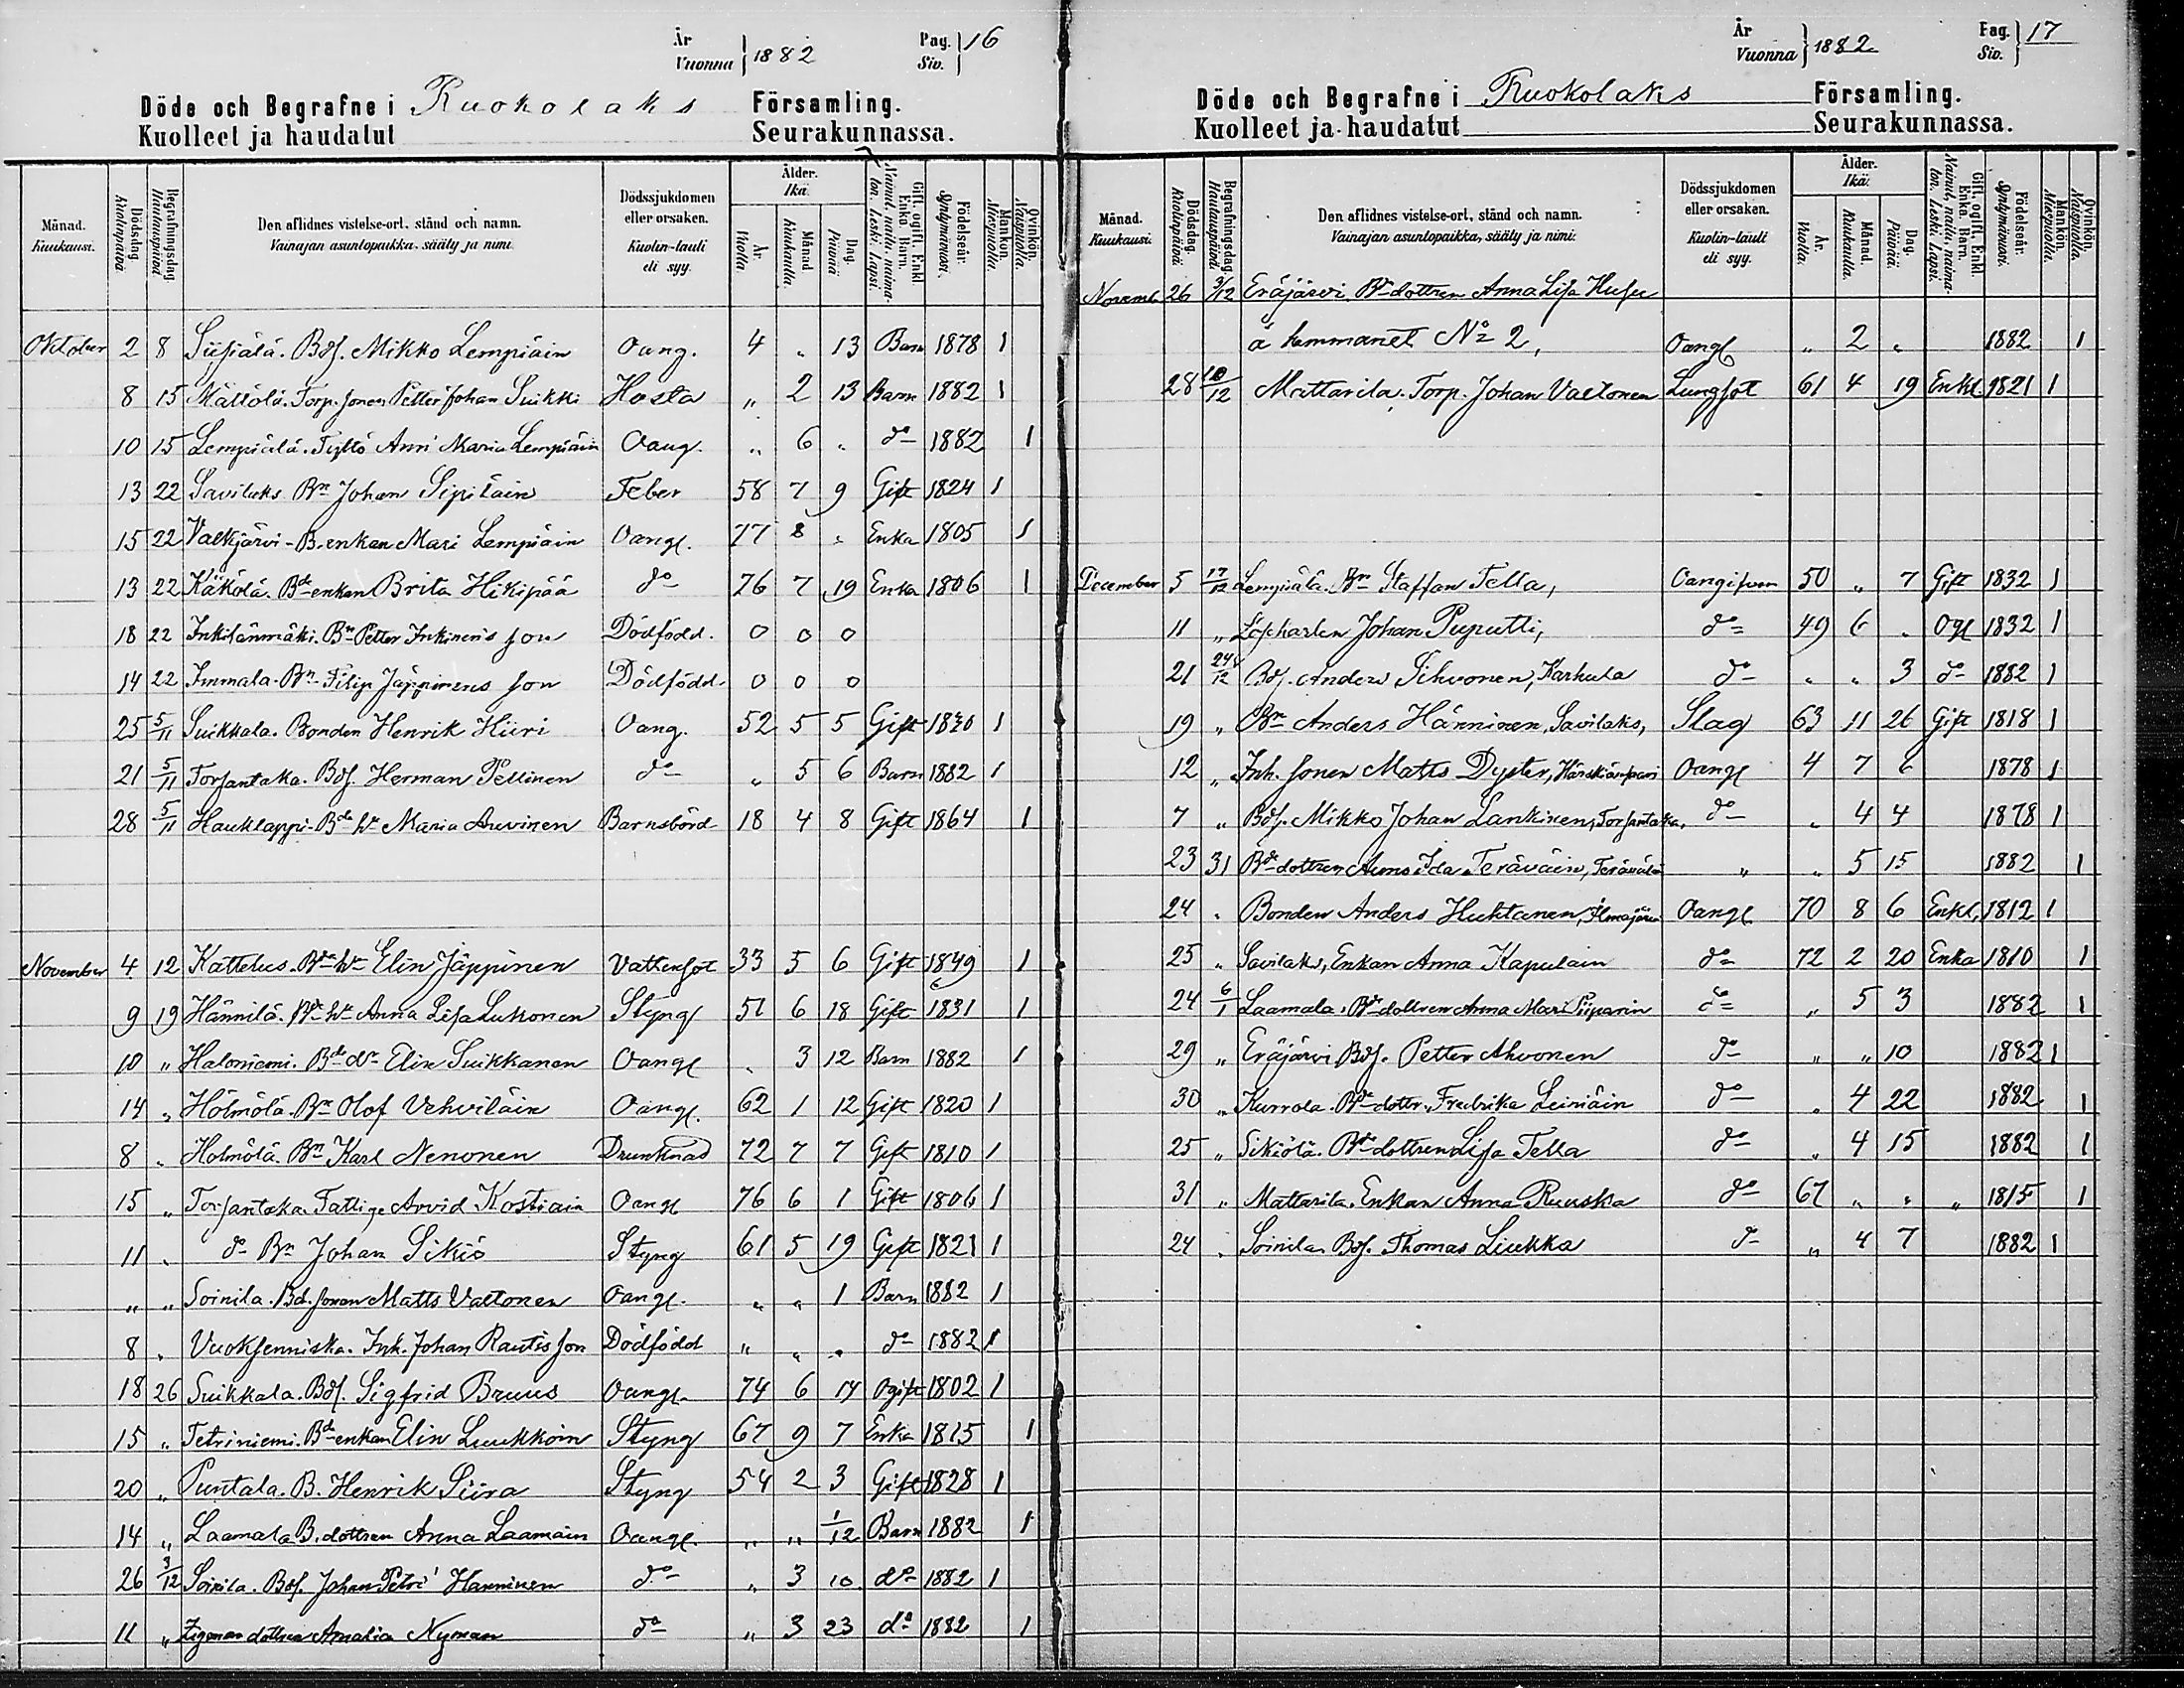 År
Vuonna } 1882 Pag.
Siv. } 16
Döde och Begrafne i Ruokolaks Församling.
Kuolleet ja haudatut Seurakunnassa.
Månad. Kuukausi. Dödsdag. Kuolinpäivä. Begrafningsdag. Hautauspäivä. Den aflidnes vistelse-ort, stånd och namn. Vainajan asuntopaikka, sääty ja nimi. Dödssjukdomen eller orsaken. Kuolin-tauti eli syy. Ålder. Ikä. År. Vuotta. Månad. Kuukautta. Dag. Päivää. Gift, ogift, Enkl. Enka. Barn. Nainut, naitu, naimaton. Leski. Lapsi. Födelseår. Syntymävuosi. Mankön. Miespuolia. Qvinkön. Vaispuolia.
Oktober 2 8 Siisiälä. Bds. Mikko Lempiäin Oang. 4 „ 13 Barn 1878 1
8 15 Mättölä. Torp. sonen Petter Johan Suikki Hosta „ 2 13 Barn 1882 1
10 15 Lempiälä. Anni Maria Lempiäin Oang. „ 6 „ do 1882 1
13 22 Savilaks Bn Johan Sipiläin Feber 58 7 9 Gift 1824 1
15 22 Valkjärvi - B. enkan Mari Lempiäin Oangf. 77 8 „ Enka 1805 1
13 22 Käkölä. Bde enkan Brita Hikipää do 76 7 19 Enka 1806 1
18 22 Inkilänmäki. Bn Petter Inkinens son Dödfödd. 0 0 0
14 22 Immala. Bn Filip Jäppinens son Dödfödd. 0 0 0
25 5/11 Suikkala. Bonden Henrik Hiiri Oang. 52 5 5 Gift 1830 1
21 5/11 Torsantaka. Bds. Herman Pellinen do „ 5 6 Barn 1882 1
28 5/11 Hauklappi. Bde hu Maria Auvinen Barnsbörd 18 4 8 Gift 1864 1
November 4 12 Kattelus. Bde hu Elin Jäppinen Vattensot 33 5 6 Gift 1849 1
9 19 Hännilä. Bde hu Anna Lisa Lukonen Styng 51 6 18 Gift 1831 1
10 „ Haloniemi. Bde dr Elin Suikkanen Oangf „ 3 12 Barn 1882 1
14 „ Hölmölä. Bn Olof Vehviläin Oangf. 62 1 12 Gift 1820 1
8 „ Hölmölä. Bn Karl Nenonen Drunknad 72 7 7 Gift 1810 1
15 „ Torsantaka. Fattige Arvid Kostiain Oangf 76 6 1 Gift 1806 1
11 „ do Bn Johan Sikiö Styng 61 5 19 Gift 1821 1
„ „ Soinila. Bd. sonen Matts Valtonen Oangf. „ „ 1 Barn 1882 1
8 „ Vuoksenniska. Inh. Johan Rautis son Dödfödd „ „ „ do 1882 1
18 26 Suikkala. Bds. Sigfrid Bruus Oangf. 74 6 14 Ogift 1802 1
15 „ Tetriniemi. Bde enkan Elin Luukkoin Styng 67 9 7 Enka 1815 1
20 „ Puntala. B. Henrik Siira Styng 54 2 3 Gift 1828 1
14 „ Laamala B. dottren Anna Laamain Oangf. „ „ 1/12 Barn 1882 1
26 3/12 Soinila. Bds. Johan Petri Hänninen do „ 3 10 do 1882 1
11 „ dottren Amalia Nyman do „ 3 23 do 1882 1
År
Vuonna } 1882 Pag.
Siv. } 17
Döde och Begrafne i Ruokolaks Församling.
Kuolleet ja haudatut Seurakunnassa.
Månad. Kuukausi. Dödsdag. Kuolinpäivä. Begrafningsdag. Hautauspäivä. Den aflidnes vistelse-ort, stånd och namn. Vainajan asuntopaikka, sääty ja nimi. Dödssjukdomen eller orsaken. Kuolin-tauti eli syy. Ålder. Ikä. År. Vuotta. Månad. Kuukautta. Dag. Päivää. Gift, ogift, Enkl. Enka. Barn. Nainut, naitu, naimaton. Leski. Lapsi. Födelseår. Syntymävuosi. Mankön. Miespuolia. Qvinkön. Vaispuolia.
Novemb. 26 3/12 Eräjärvi Bde dottren Anna Lisa Husu
å hemmanet No 2, Oangf „ 2 „ 1882 1
28 10/12 Mattarila. Torp. Johan Valtonen Lungsot 61 4 19 Enkl. 1821 1
December 5 17/12 Lempiälä. Bn Staffan Tella, Oangifven 50 „ 7 Gift 1832 1
11 „ Löskarlen Johan Puputti, do 49 6 „ Ogf 1832 1
21 24/12 Bds. Anders Sihvonen, Karhula do „ „ 3 do 1882 1
19 „ Bn Anders Hänninen, Savilaks, Slag 63 11 26 Gift 1818 1
12 „ Inh. sonen Matts Dyster, Oangf 4 7 6 1878 1
7 „ Bds. Mikko Johan Lankinen, Torsantaka, do „ 4 4 1878 1
23 31 Bde dottren Anna Ida Teräväin, Terävälä „ „ 5 15 1882 1
24 „ Bonden Anders Huhtanen, Ilmajärvi Oangf 70 8 6 Enkl. 1812 1
25 „ Savilaks, Enkan Anna Kapulain do 72 2 20 Enka 1810 1
24 6/1 Laamala, Bde dottren Anna Mari Piiparin do „ 5 3 1882 1
29 „ Eräjärvi Bds. Petter Ahvonen do „ „ 10 1882 1
30 „ Kurrola. Bde dottr. Fredrika Leiniäin do „ 4 22 1882 1
25 „ Sikiölä. Bde dottren Lisa Tella do „ 4 15 1882 1
31 „ Mattarila. Enkan Anna Ruuska do 67 „ „ „ 1815 1
24 „ Soinila. Bds. Thomas Liukka do „ 4 7 1882 1